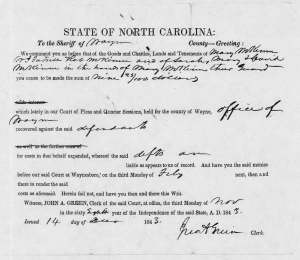 STATE OF NORTH CAROLINA:
To the Sheriff of Wayne County—Greeting:
We command you as before that of the Goods and Chattles, Lands and Tenements of Mary McKinne
McKinne in the hands of Mary McKinne their Guard
you cause to be made the sum of Nine /100 dollars
which lately in our Court of Pleas and Quarter Sessions, held for the county of Wayne, office of
Wayne
recovered against the said defendants
as well in the further named
for costs in that behalf expended, whereof the said defts are
liable as appears to us of record. And have you the said monies
before our said Court at Waynesboro,' on the third Monday of Feb'y next, then and
there to render the said
costs as aforesaid. Herein fail not, and have you then and there this Writ.
Witness, JOHN A. GREEN, Clerk of the said Court, at office, the third Monday of Nov
in the sixty Eighth year of the Independence of the said State, A. D. 1843.
Issued 14 day of Dec 1843.
Jno A Green Clerk.